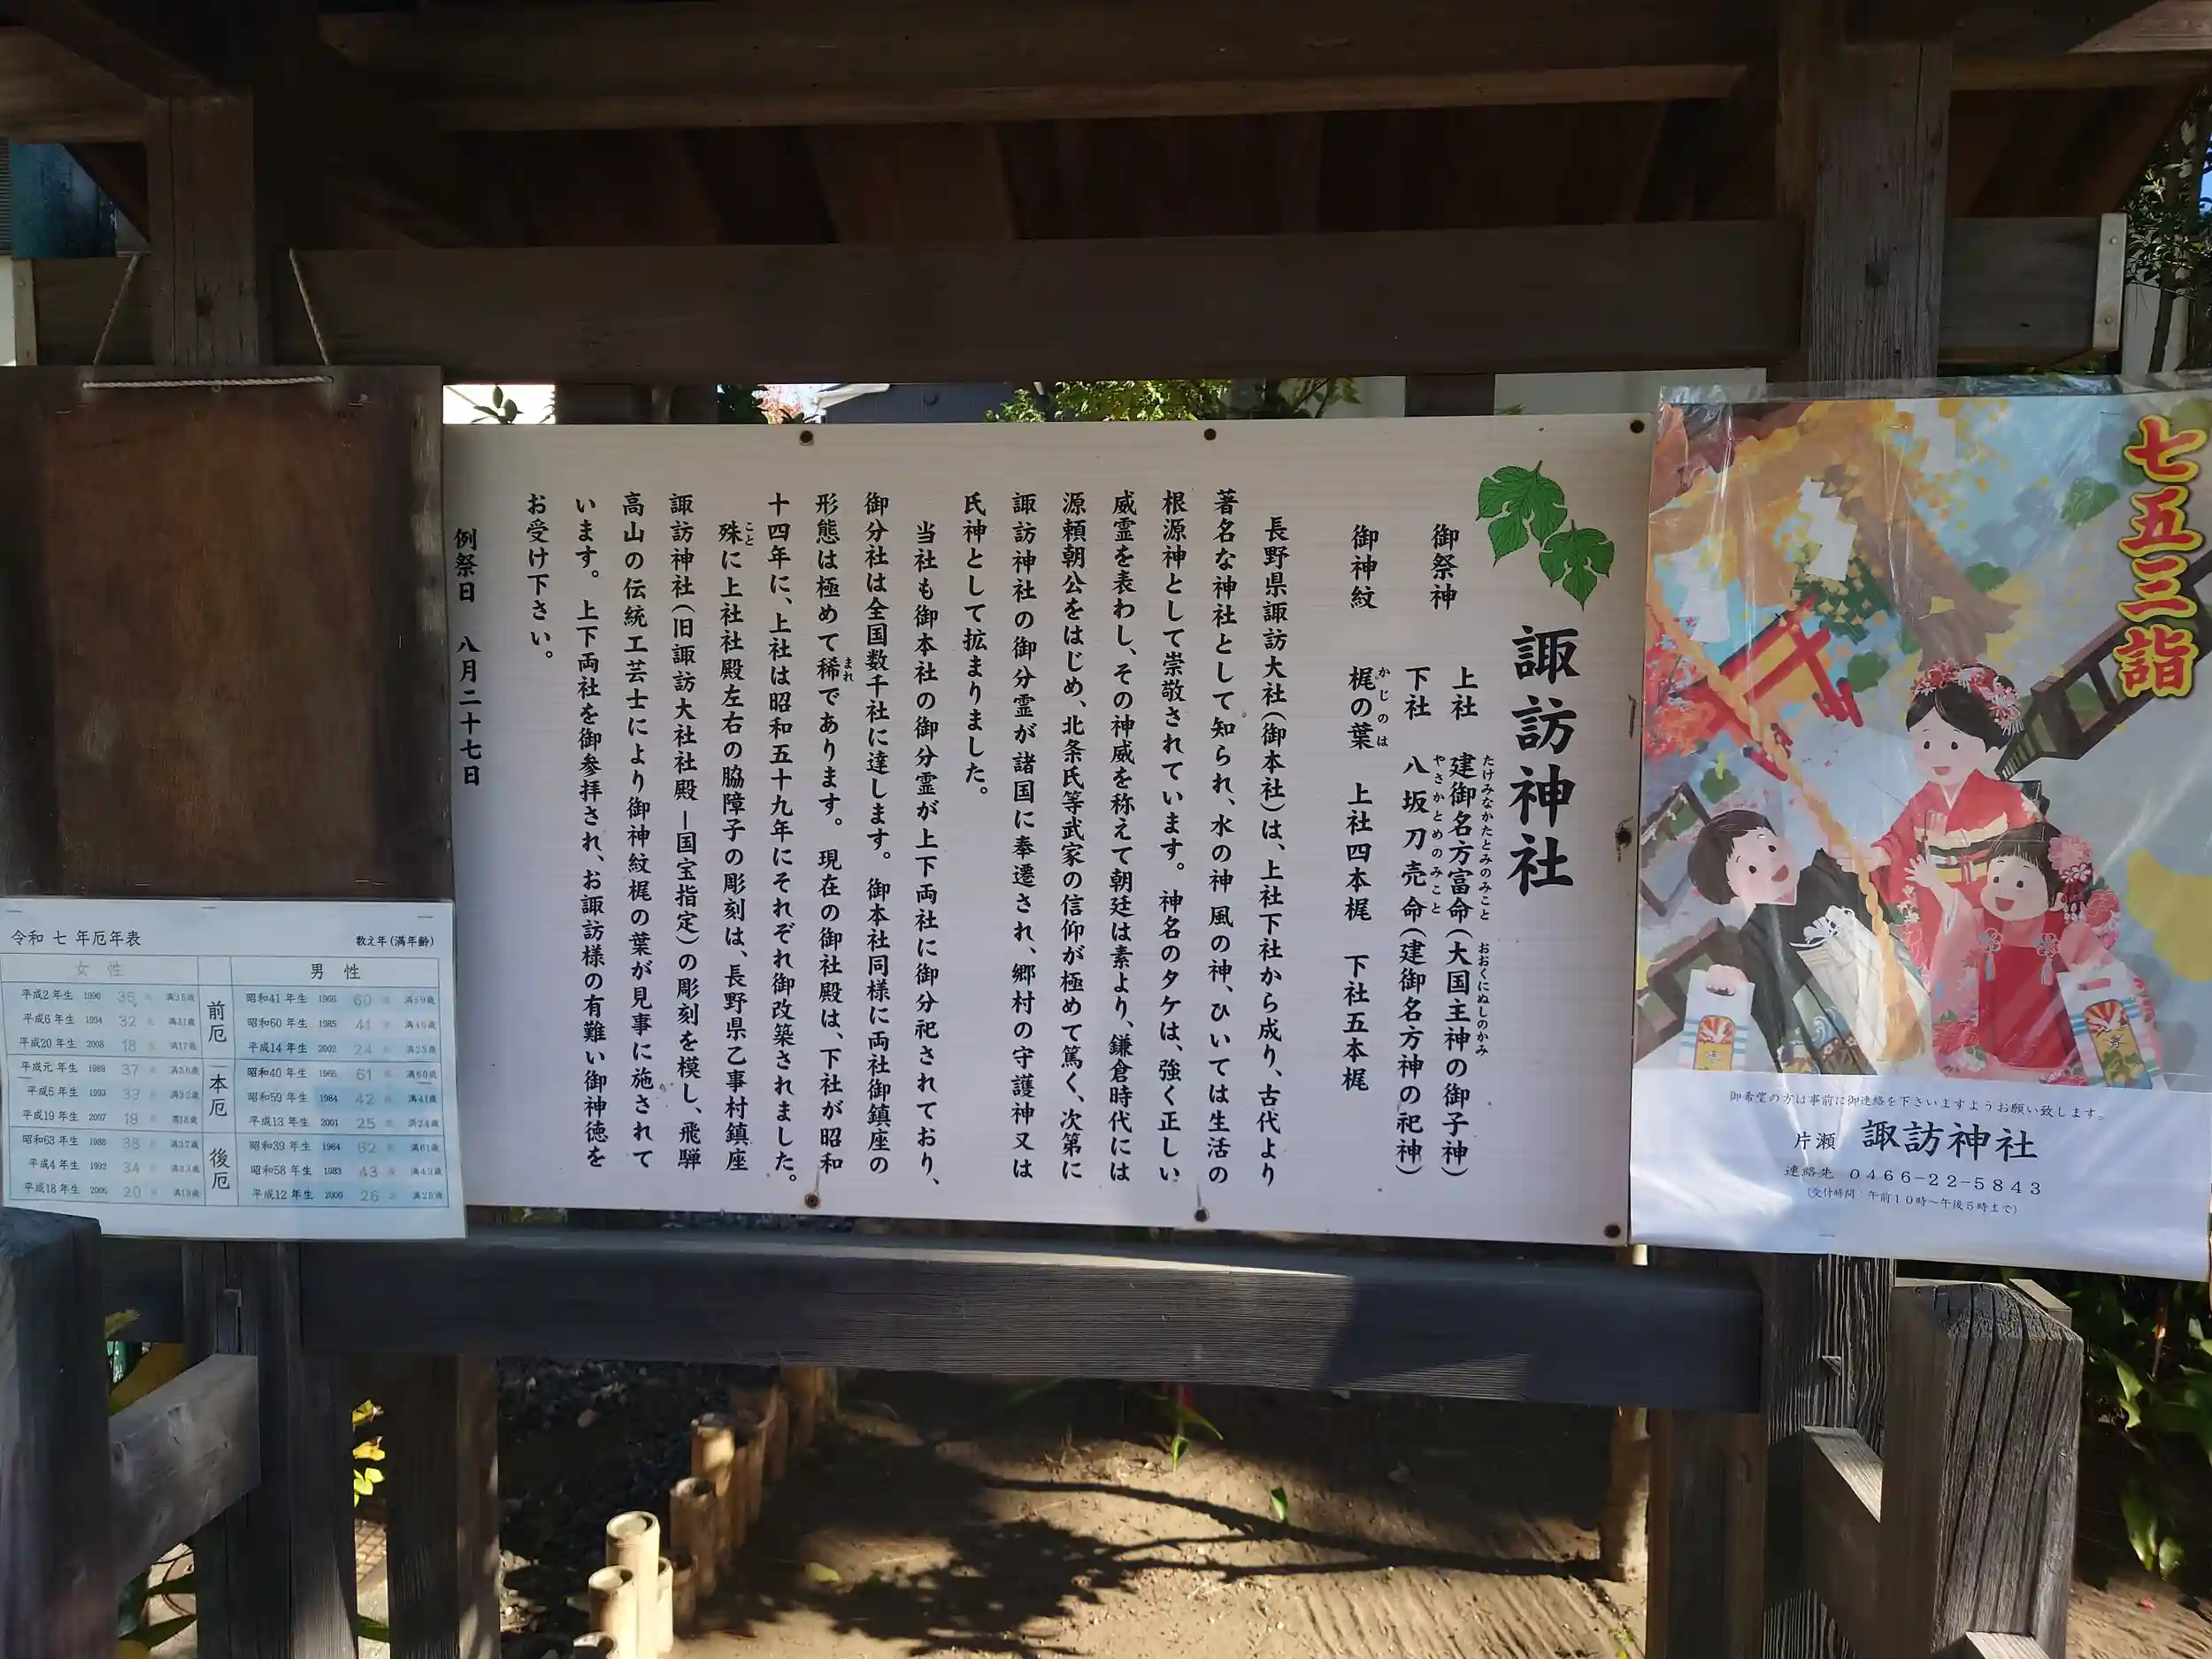 諏訪神社
御祭神 上社 建御名方富命(大国主神の御子神)
たけみなかたとみのみこと おおくにぬしのかみ
下社 八坂刀売命(建御名方神の妃神)
やさかとめのみこと
御神紋 梶の葉 上社四本梶 下社五本梶
かじのは
長野県諏訪大社(御本社)は、上社下社から成り、古代より
著名な神社として知られ、水の神 風の神、ひいては生活の
根源神として崇敬されています。神名のタケは、強く正しい
威霊を表わし、その神威を称えて朝廷は素より、鎌倉時代には
源頼朝公をはじめ、北条氏等武家の信仰が極めて篤く、次第に
諏訪神社の御分霊が諸国に奉遷され、郷村の守護神又は
氏神として拡まりました。
当社も御本社の御分霊が上下両社に御分祀されており、
御分社は全国数千社に達します。御本社同様に両社御鎮座の
形態は極めて稀であります。現在の御社殿は、下社が昭和
まれ
十四年に、上社は昭和五十九年にそれぞれ御改築されました。
殊に上社社殿左右の脇障子の彫刻は、長野県乙事村鎮座
こと
諏訪神社(旧諏訪大社社殿ー国宝指定)の彫刻を模し、飛騨
高山の伝統工芸士により御神紋梶の葉が見事に施されて
います。上下両社を御参拝され、お諏訪様の有難い御神徳を
お受け下さい。
例祭日 八月二十七日
七五三詣
御希望の方は事前に御連絡を下さいますようお願い致します。
片瀬 諏訪神社
連絡先 0466-22-5843
(受付時間 午前10時〜午後5時まで)
令和 七 年厄年表 数え年(満年齢)
女 性 男 性
平成2年生 1990 36歳 満35歳 前厄 昭和41年生 1966 60歳 満59歳
平成6年生 1994 32歳 満31歳 昭和60年生 1985 41歳 満40歳
平成20年生 2008 18歳 満17歳 平成14年生 2002 24歳 満23歳
平成元年生 1989 37歳 満36歳 本厄 昭和40年生 1965 61歳 満60歳
平成5年生 1993 33歳 満32歳 昭和59年生 1984 42歳 満41歳
平成19年生 2007 19歳 満18歳 平成13年生 2001 25歳 満24歳
昭和63年生 1988 38歳 満37歳 後厄 昭和39年生 1964 62歳 満61歳
平成4年生 1992 34歳 満33歳 昭和58年生 1983 43歳 満42歳
平成18年生 2006 20歳 満19歳 平成12年生 2000 26歳 満25歳